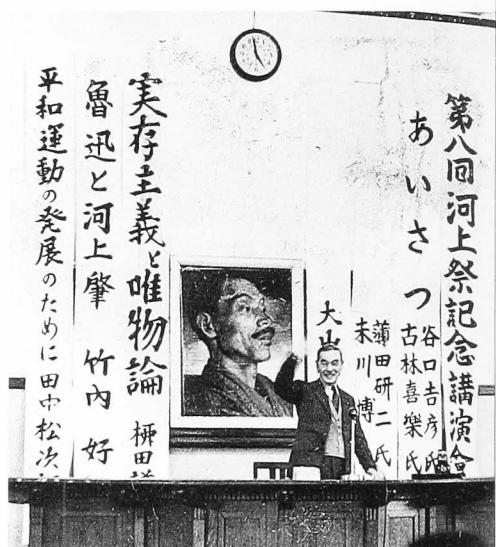 第八回河上祭記念講演會
あいさつ
谷口吉彦氏
古林喜樂氏
蒲田研二氏
末川博
大山
実存主義と唯物論 柳田
魯迅と河上肇 竹内好
平和運動の発展のために 田中松次